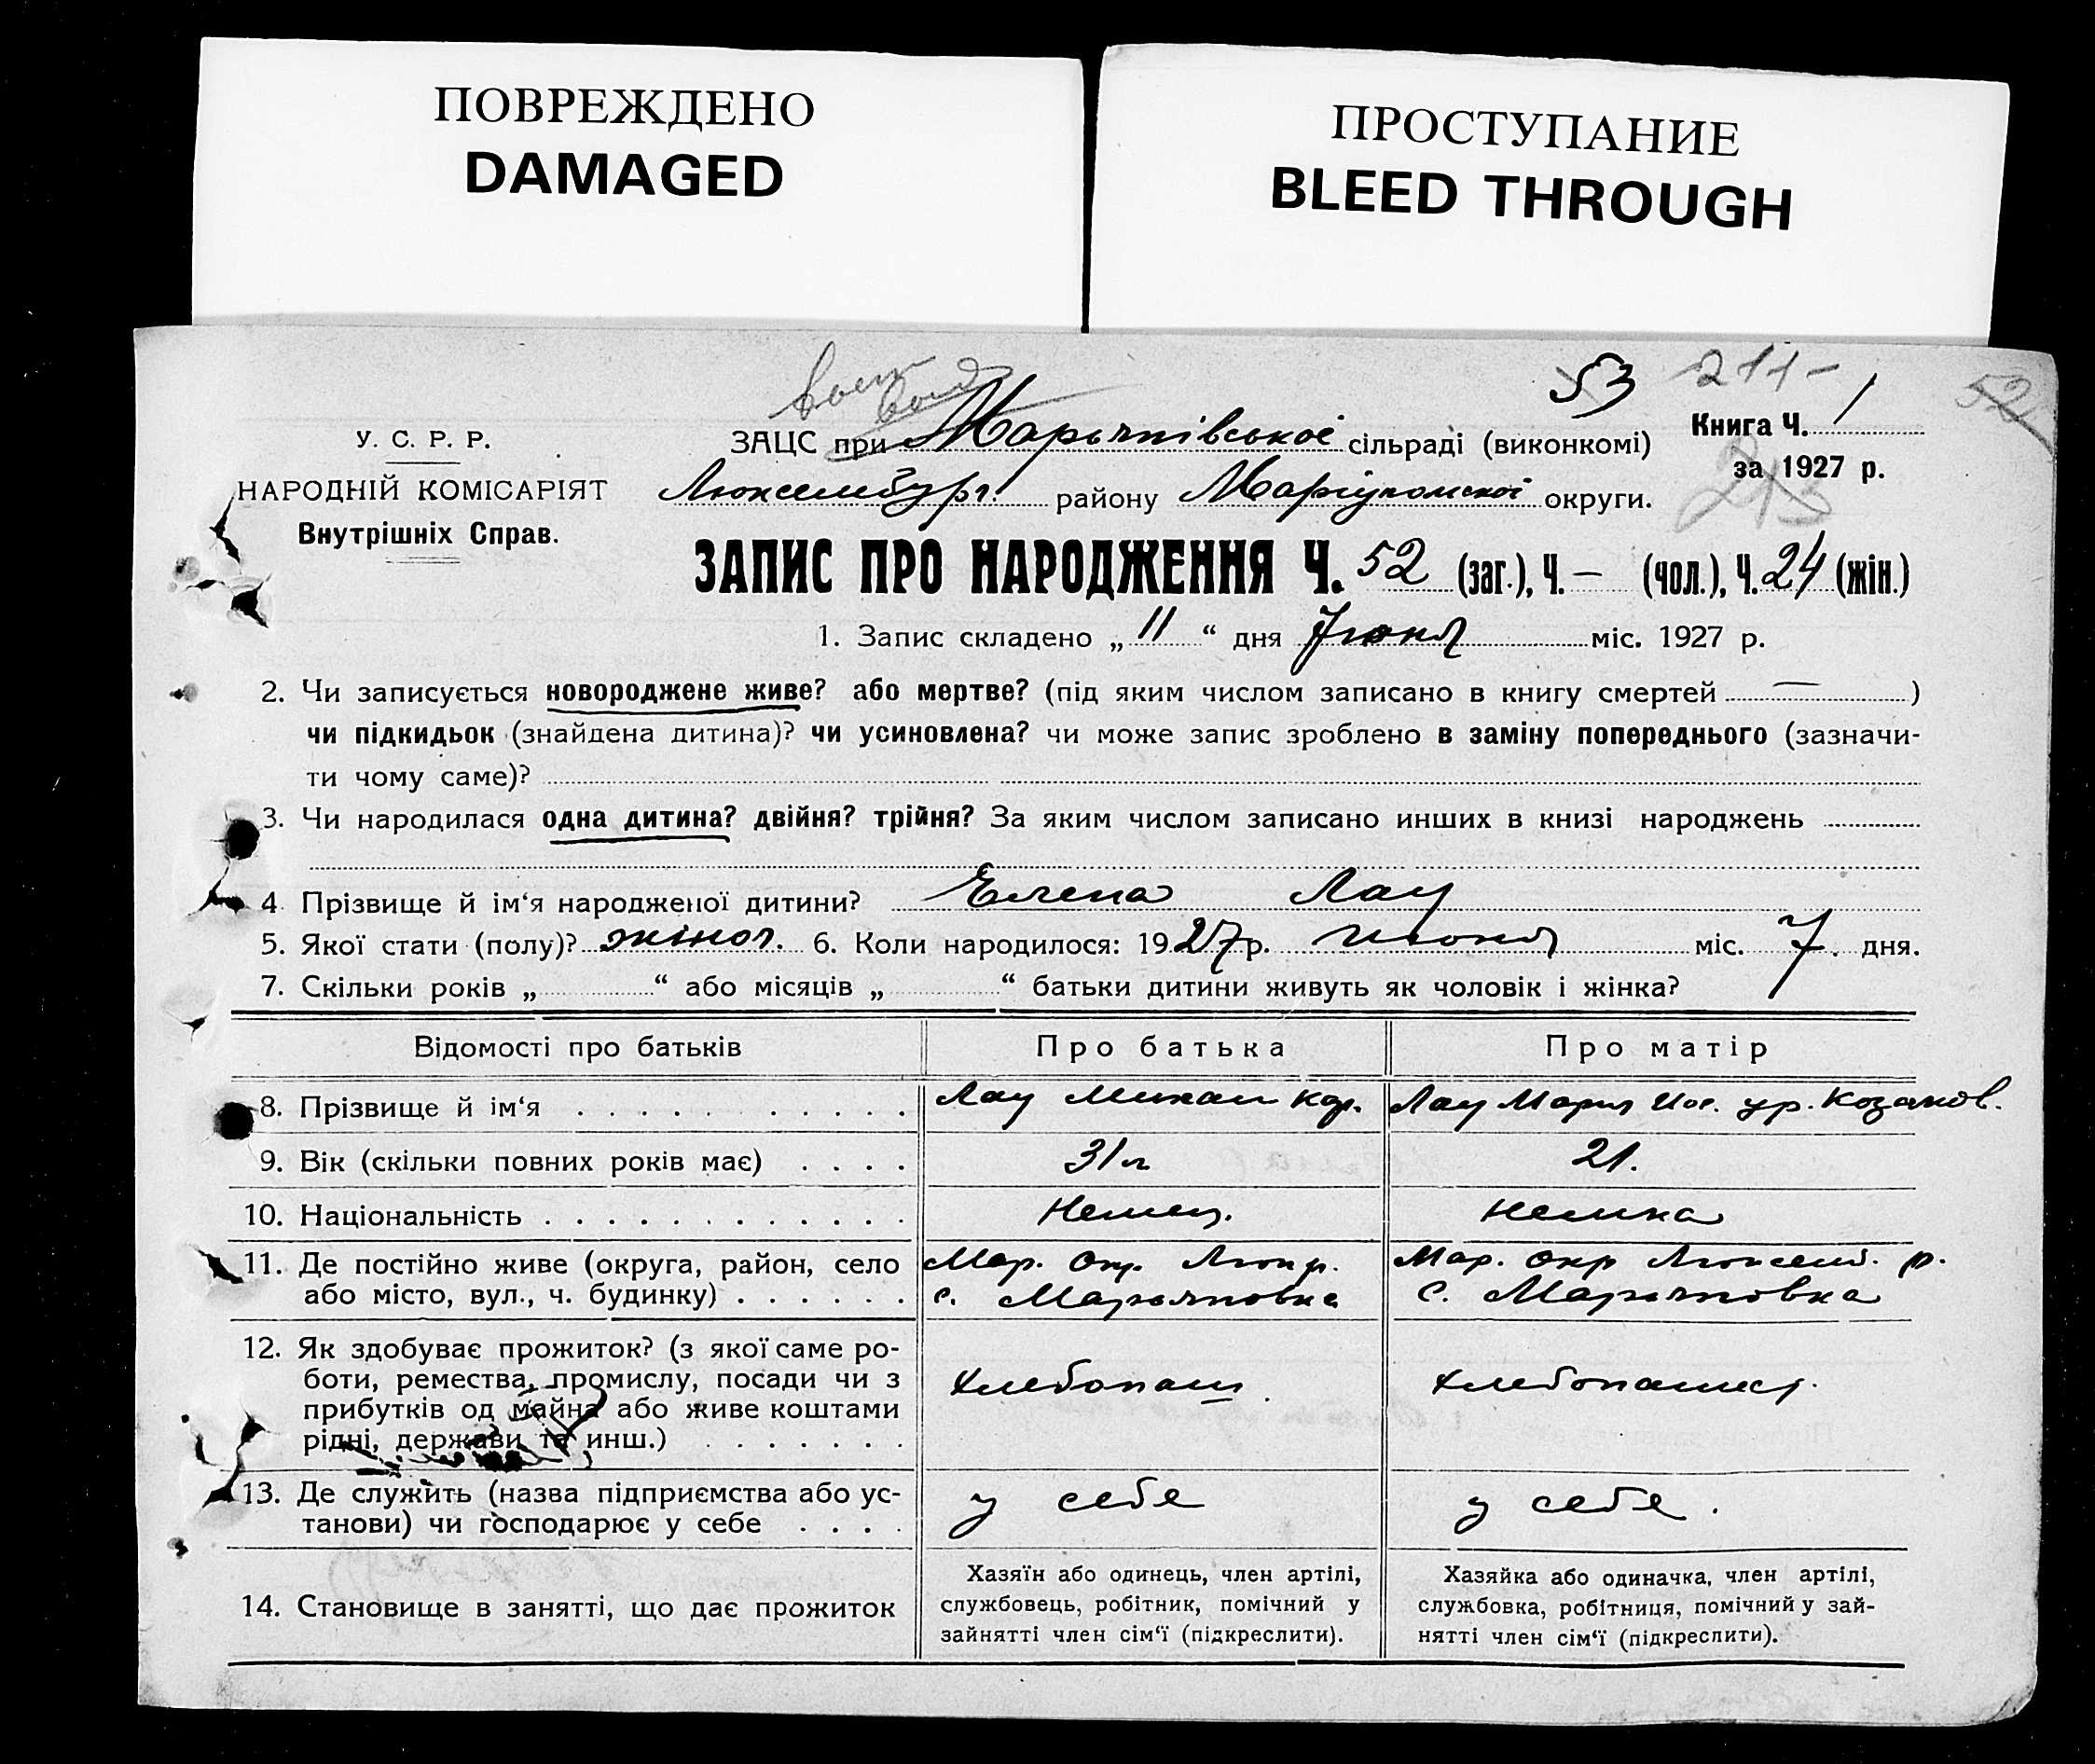 ПОВРЕЖДЕНО
DAMAGED
ПРОСТУПАНИЕ
BLEED THROUGH
53 211- 52
У. С. Р. Р.
НАРОДНІЙ КОМІСАРІЯТ
Внутрішніх Справ.
ЗАЦС при Марьянівської сільраді (виконкомі)
Люксембург. району Маріупольскої округи.
Книга Ч. 1
за 1927 р.
213
ЗАПИС ПРО НАРОДЖЕННЯ Ч. 52 (заг.), Ч. — (чол.), Ч. 24 (жін.)
1. Запис складено „ 11 “ дня Июня міс. 1927 р.
2. Чи записується новороджене живе? або мертве? (під яким числом записано в книгу смертей — )
чи підкидьок (знайдена дитина)? чи усиновлена? чи може запис зроблено в заміну попереднього (зазначи-
ти чому саме)?
3. Чи народилася одна дитина? двійня? трійня? За яким числом записано инших в книзі народжень
4 Прізвище й ім‘я народженої дитини? Елена Лау
5. Якої стати (полу)? жіноч. 6. Коли народилося: 1927 р. Июня міс. 7. дня.
7. Скільки років „ “ або місяців „ “ батьки дитини живуть як чоловік і жінка?
Відомості про батьків Про батька Про матір
8. Прізвище й ім‘я Лау Михаил Кар. Лау Мария Иос. ур. Козаков.
9. Вік (скільки повних років має) 31 л 21.
10. Національність Немец. Немка
11. Де постійно живе (округа, район, село Мар. Окр. Люк р. Мар. окр Люксемб. р.
або місто, вул., ч. будинку) с. Марьяновка с. Марьяновка
12. Як здобуває прожиток? (з якої саме ро-
боти, ремества, промислу, посади чи з хлебопаш. хлебопашест.
прибутків од майна або живе коштами
рідні, держави та инш.)
13. Де служить (назва підприємства або ус- у себе у себе.
танови) чи господарює у себе
14. Становище в занятті, що дає прожиток
Хазяїн або одинець, член артілі,
службовець, робітник, помічний у
зайнятті член сім‘ї (підкреслити).
Хазяйка або одиначка, член артілі,
службовка, робітниця, помічний у зай-
нятті член сім‘ї (підкреслити).